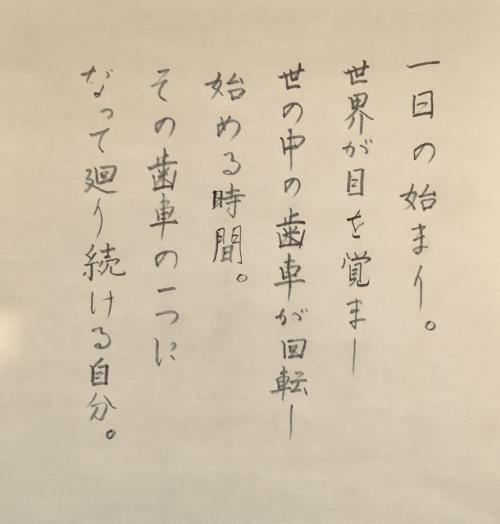 一日の始まり。
世界が目を覚まし
世の中の歯車が回転し
始める時間。
その歯車の一つに
なって廻り続ける自分。